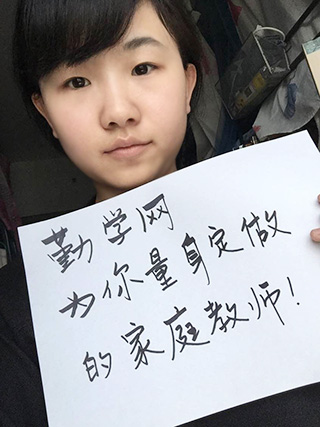 勤学网
为你量身定做
的家庭教师!